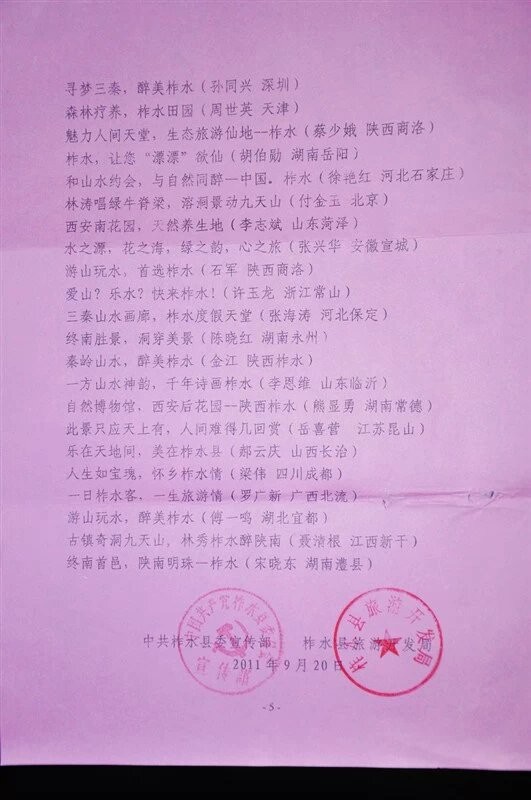 寻梦三秦，醉美柞水（孙同兴 深圳）
森林疗养，柞水田园（周世英 天津）
魅力人间天堂，生态旅游仙地--柞水（蔡少娥 陕西商洛）
柞水，让您“漂漂”欲仙（胡伯勋 湖南岳阳）
和山水约会，与自然同醉—中国。柞水（徐艳红 河北石家庄）
林涛唱绿牛脊梁，溶洞景动九天山（付金玉 北京）
西安南花园，天然养生地（李志斌 山东菏泽）
水之漂，花之海，绿之韵，心之旅（张兴华 安徽宣城）
游山玩水，首选柞水（石军 陕西商洛）
爱山？乐水？快来柞水！（许玉龙 浙江常山）
三秦山水画廊，柞水度假天堂（张海涛 河北保定）
终南胜景，洞穿美景（陈晓红 湖南永州）
秦岭山水，醉美柞水（金江 陕西柞水）
一方山水神韵，千年诗画柞水（李恩维 山东临沂）
自然博物馆，西安后花园--陕西柞水（熊显勇 湖南常德）
此景只应天上有，人间难得几回赏（岳喜营 江苏昆山）
乐在天地间，美在柞水县（郝云庆 山西长治）
人生如宝瑰，怀乡柞水情（梁伟 四川成都）
一日柞水客，一生旅游情（罗广新 广西北流）
游山玩水，醉美柞水（傅一鸣 湖北宜都）
古镇奇洞九天山，林秀柞水醉陕南（聂清根 江西新干）
终南首邑，陕南明珠—柞水（宋晓东 湖南澧县）
中共柞水县委宣传部 柞水县旅游开发局
2011年9月20日
中国共产党柞水县委员会
宣传部
柞水县旅游开发局
-5-